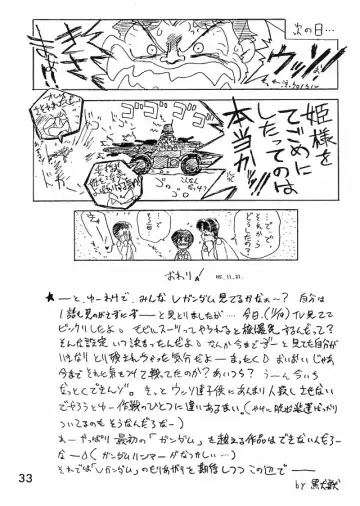 次の日…
ウッソ!!
姫様を
てごめに
したってのは
本当か!!
ゴゴゴゴ
…で、で
それから
どうしたの?
おわり
★ーーと、ゆーわけで、みんなVガンダム見てるかなぁ〜? 自分は
1話も見のがさずにずーーと見とりましたが…… 今日、(11/19) TV見てて
ビックリしたよ。モビルスーツってやられると核爆発するんだって?
そんな設定 いつ決まったんだよ。なんか今までずーーと見ても自分が
いきなりとり残されちゃった気分だよーまったく。おいおいじゃあ
今までそれに気をつけて戦ってたのか? あいつら? うーんちいち
なっとくできんゾ。きっとウッソ達子供にあんまり人殺しさせない
でやろうとゆー作戦のひとつに違いあるまい。
ついてるのも そうなんだろなー)
あーやっぱり 最初の「ガンダム」を越える作品はできないんだろー
なーΔ (ガンダムハンマーがなつかしい…)
それでは「Vガンダム」のもりあがりを期待しつつこの辺でーーー
by 黒犬獣
33